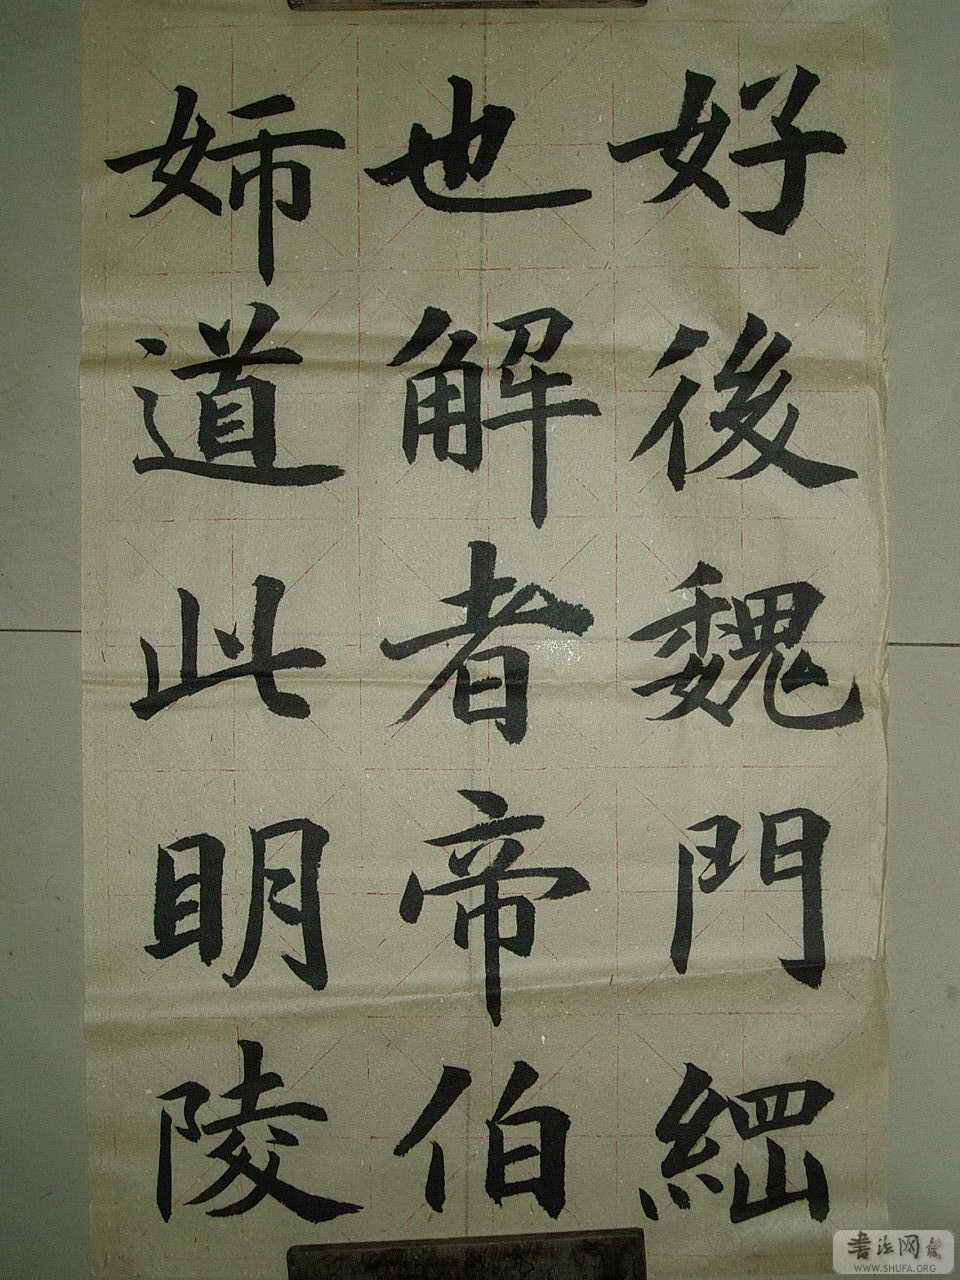 好後魏門綱
也解者帝伯
姉道此眀陵
書法网
WWW.SHUFA.ORG